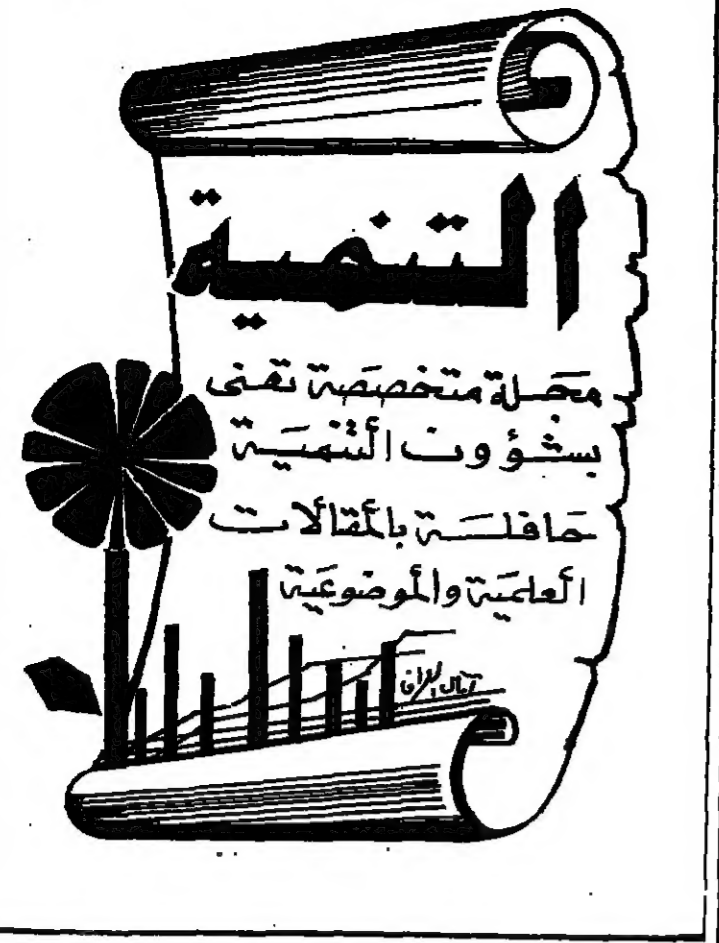 التنمية
مجلة متخصصة تعنى
بشؤون التنمية
حافلة بالمقالات
العلمية والموضوعية